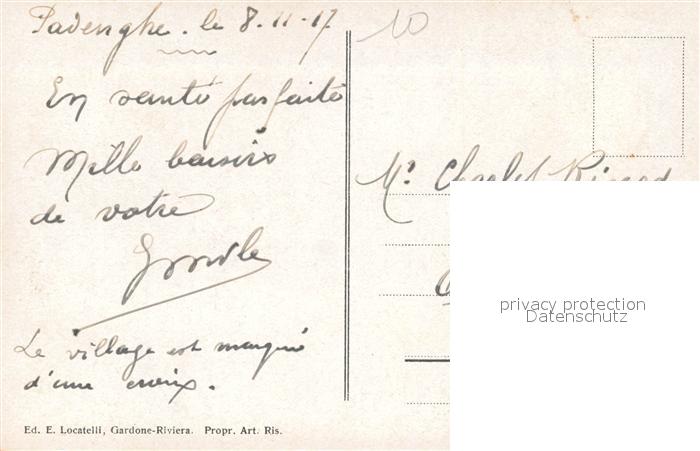 Padenghe. le 8.11-17
10
En santé parfaite
Mille baisirs
de votre
Le village est marqué
d'une croix.
Mr.
Ed. E. Locatelli, Gardone-Riviera. Propr. Art. Ris.
privacy protection
Datenschutz